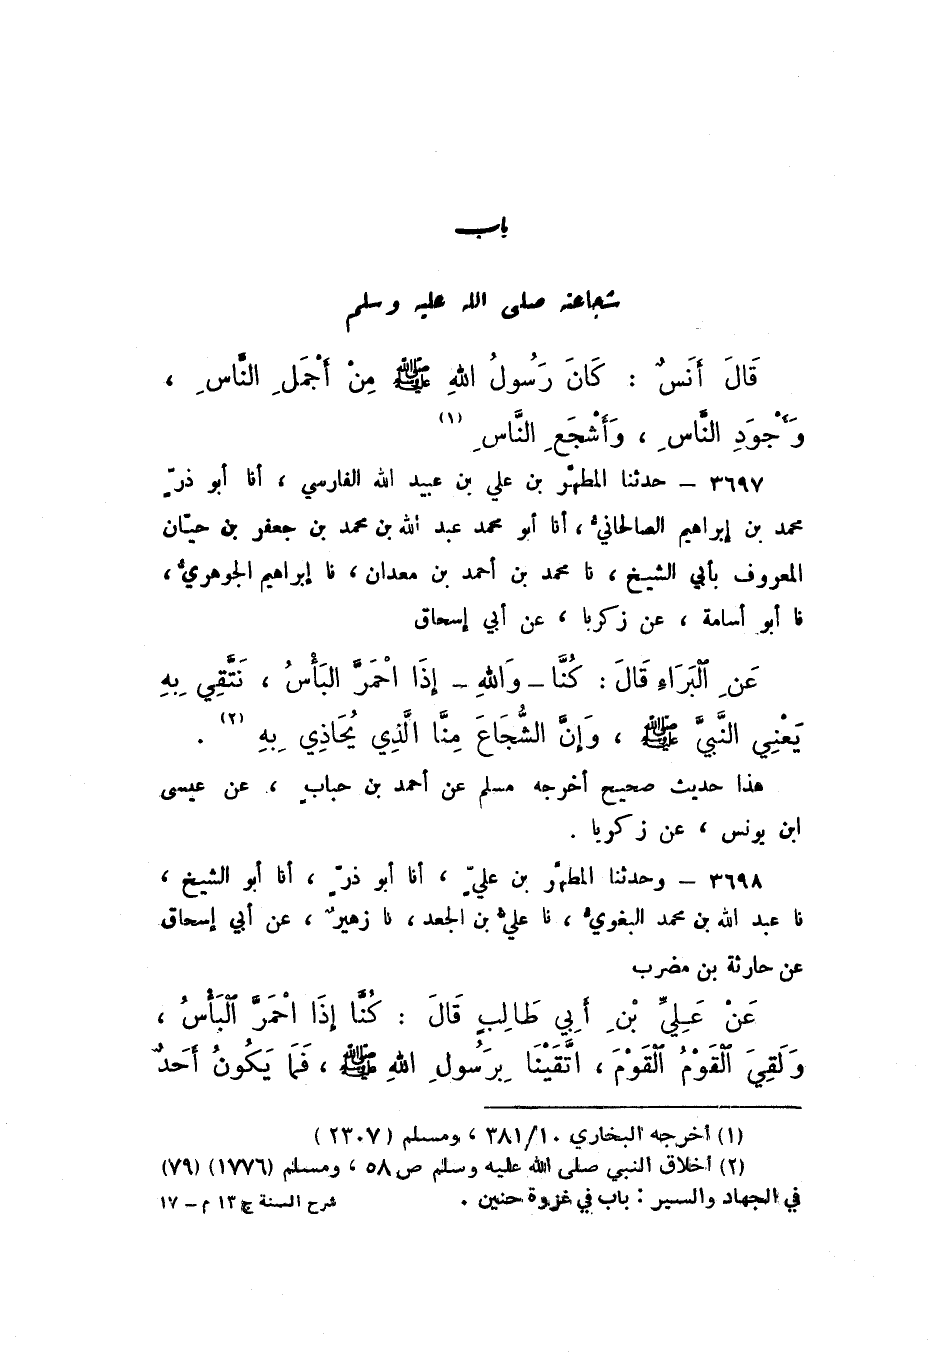 باب
شجاعته صلى الله عليه وسلم
قَالَ أَنَسٌ : كَانَ رَسُولُ اللهِ ﷺ مِنْ أَجْمَلِ النَّاسِ ،
وَأَجْوَدِ النَّاسِ ، وَأَشْجَعِ النَّاسِ (١)
٣٦٩٧ – حدثنا المطهَّر بن علي بن عبيد الله الفارسي ، أنا أبو ذرّ
محمد بن إبراهيم الصالحانيُّ ، أنا أبو محمد عبد الله بن محمد بن جعفر بن حيّان
المعروف بأبي الشيخ ، نا محمد بن أحمد بن معدان ، نا إبراهيم الجوهريُّ ،
نا أبو أسامة ، عن زكريا ، عن أبي إسحاق
عَنِ الْبَرَاءِ قَالَ : كُنَّا – وَاللهِ – إِذَا احْمَرَّ البَأْسُ ، نَتَّقِي بِهِ
يَعْنِي النَّبِيَّ ﷺ ، وَإِنَّ الشُّجَاعَ مِنَّا الَّذِي يُحَاذِي بِهِ (٢) .
هذا حديث صحيح أخرجه مسلم عن أحمد بن جناب ، عن عيسى
ابن يونس ، عن زكريا .
٣٦٩٨ – وحدثنا المطهَّر بن عليّ ، أنا أبو ذرّ ، أنا أبو الشيخ ،
نا عبد الله بن محمد البغويُّ ، نا عليُّ بن الجعد ، نا زهيرٌ ، عن أبي إسحاق
عن حارثة بن مضرب
عَنْ عَلِيِّ بْنِ أَبِي طَالِبٍ قَالَ : كُنَّا إِذَا احْمَرَّ الْبَأْسُ ،
وَلَقِيَ الْقَوْمُ الْقَوْمَ ، اتَّقَيْنَا بِرَسُولِ اللهِ ﷺ ، فَمَا يَكُونُ أَحَدٌ
(١) أخرجه البخاري ٣٨١/١٠ ، ومسلم ( ٢٣٠٧ )
(٢) أخلاق النبي صلى الله عليه وسلم ص ٥٨ ، ومسلم (١٧٧٦) (٧٩)
في الجهاد والسير : باب في غزوة حنين .
شرح السنة ج ١٣ م – ١٧